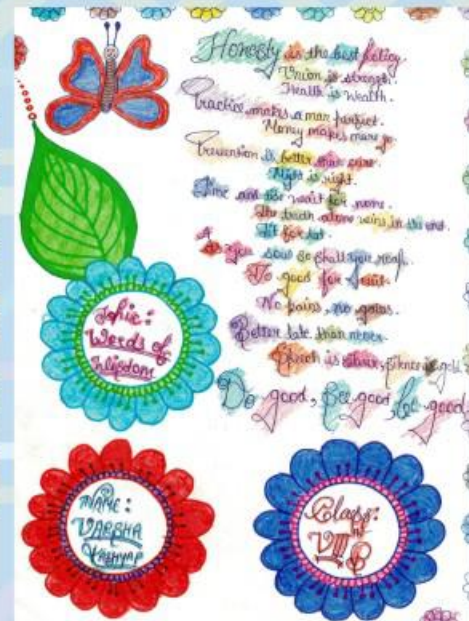 Honesty is the best policy.
Union is strength.
Health is Wealth.
Practice makes a man perfect.
Money makes mare
Prevention is better than cure.
Might is right.
Time and tide wait for none.
The truth alone wins in the end.
Tit for tat.
As you sow so shall you reap.
No pains, no gains.
Better late than never.
Speech is silver, silence is gold
Do good, see good, be good
Topic:
Words of
Wisdom
Name:
VARSHA
KASHYAP
Class:
VIII B